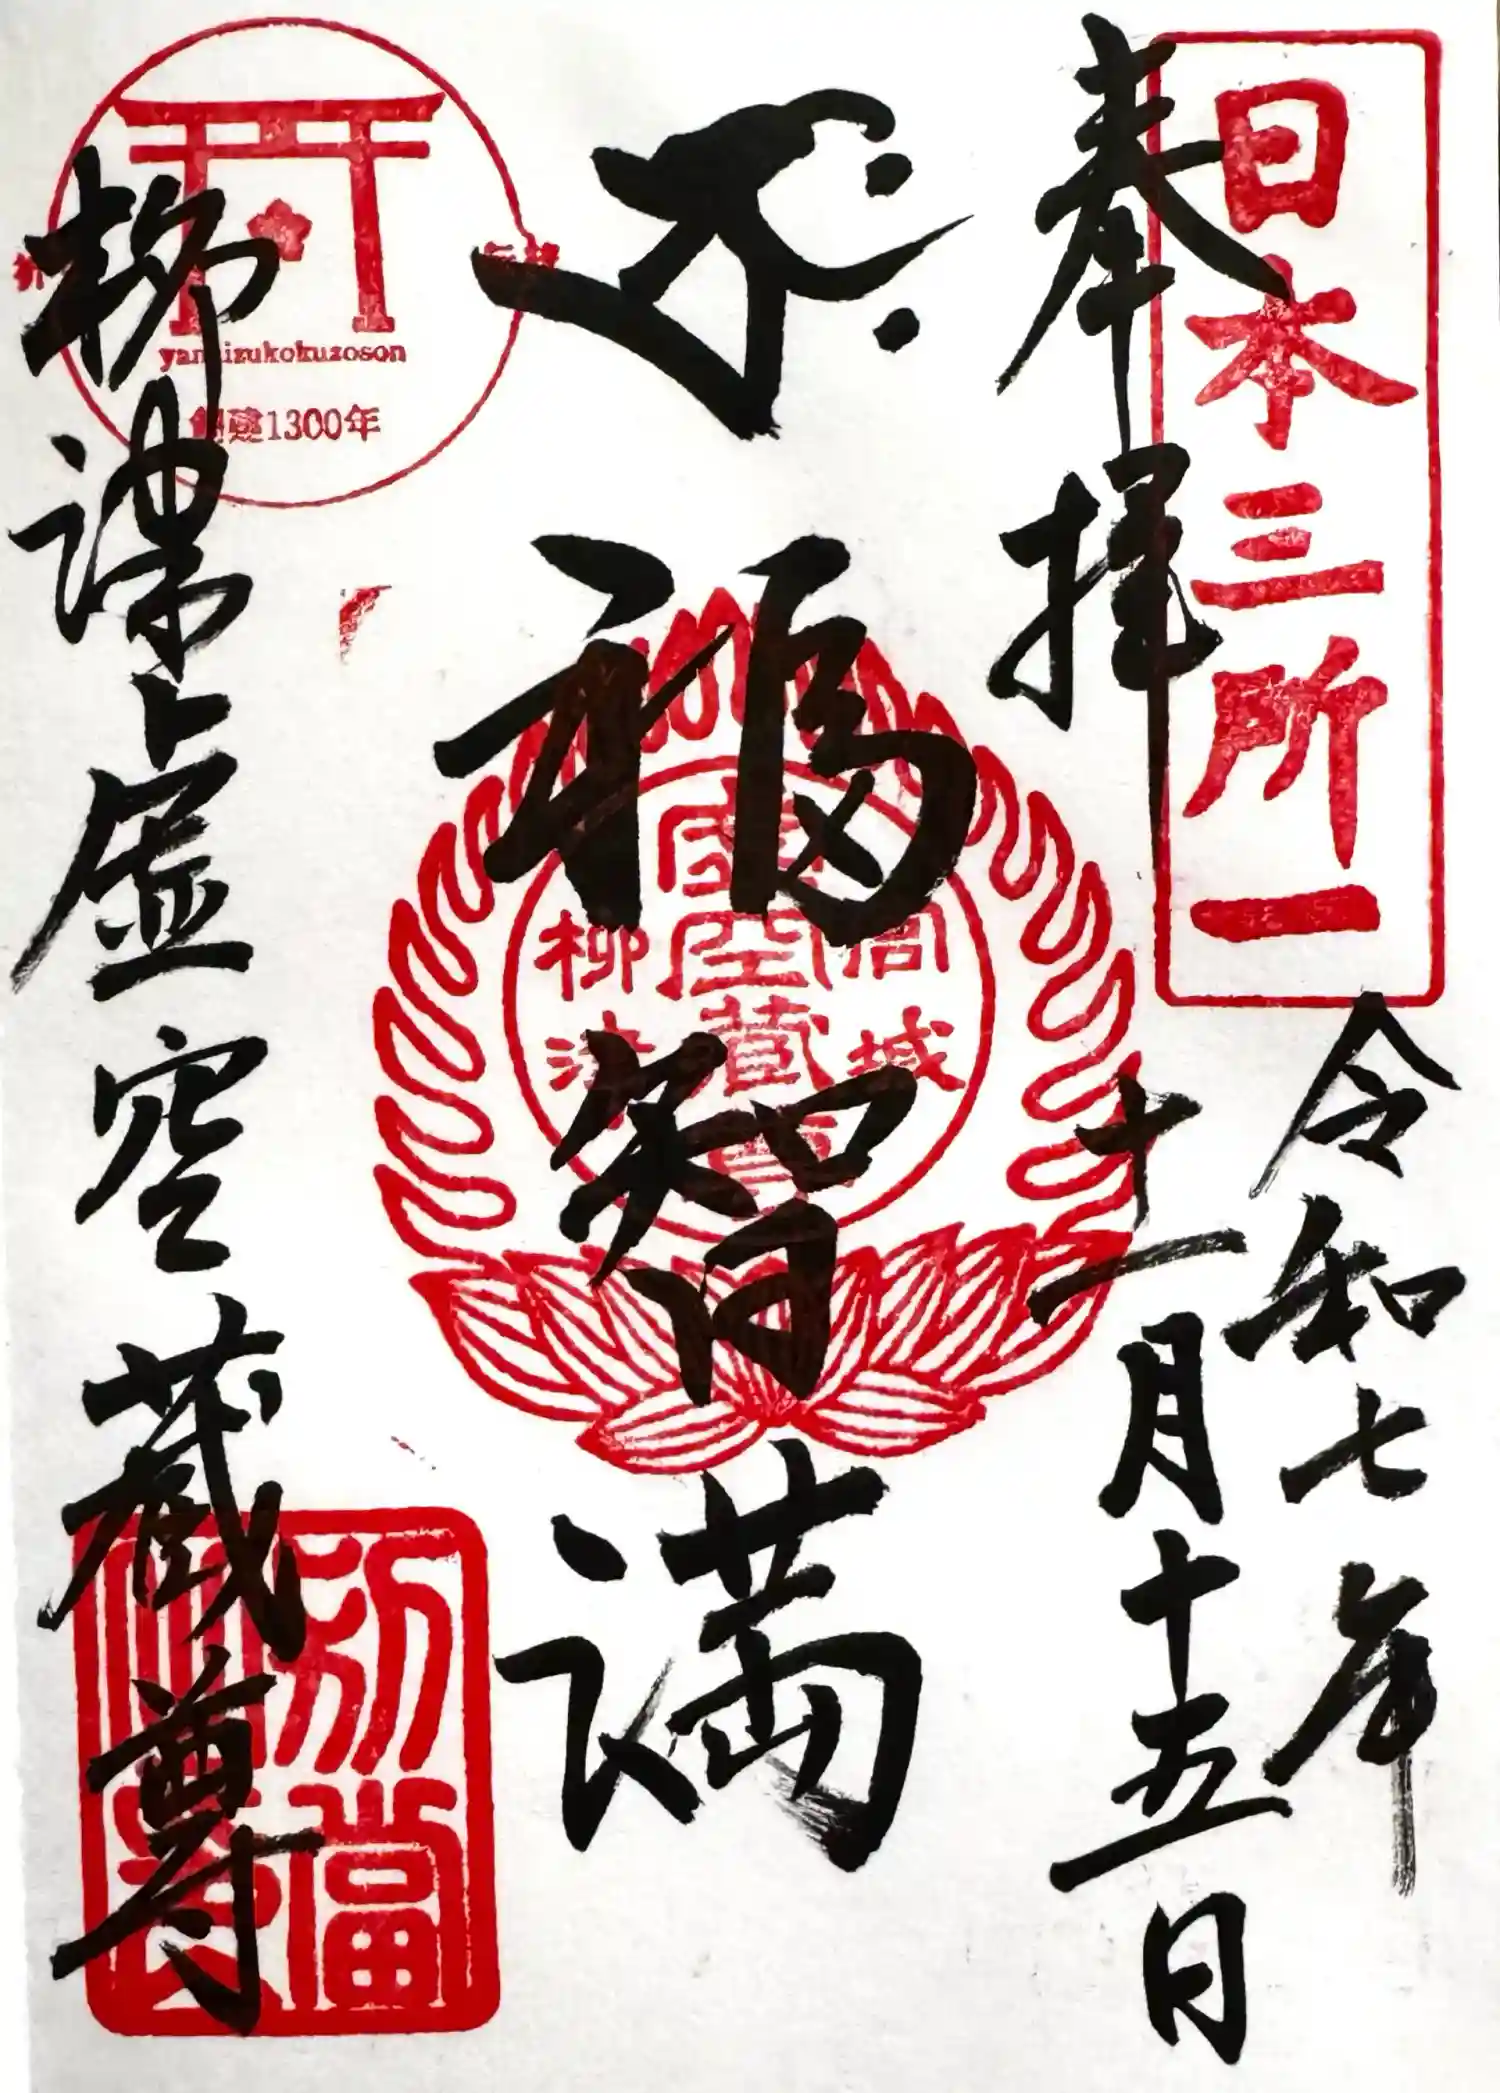 日本三所一
奉拝
令和七年
十一月十五日
福智満
宮城
虚空蔵尊
柳津
柳津虚空蔵尊
yanaizukokuzoson
創建1300年
別當